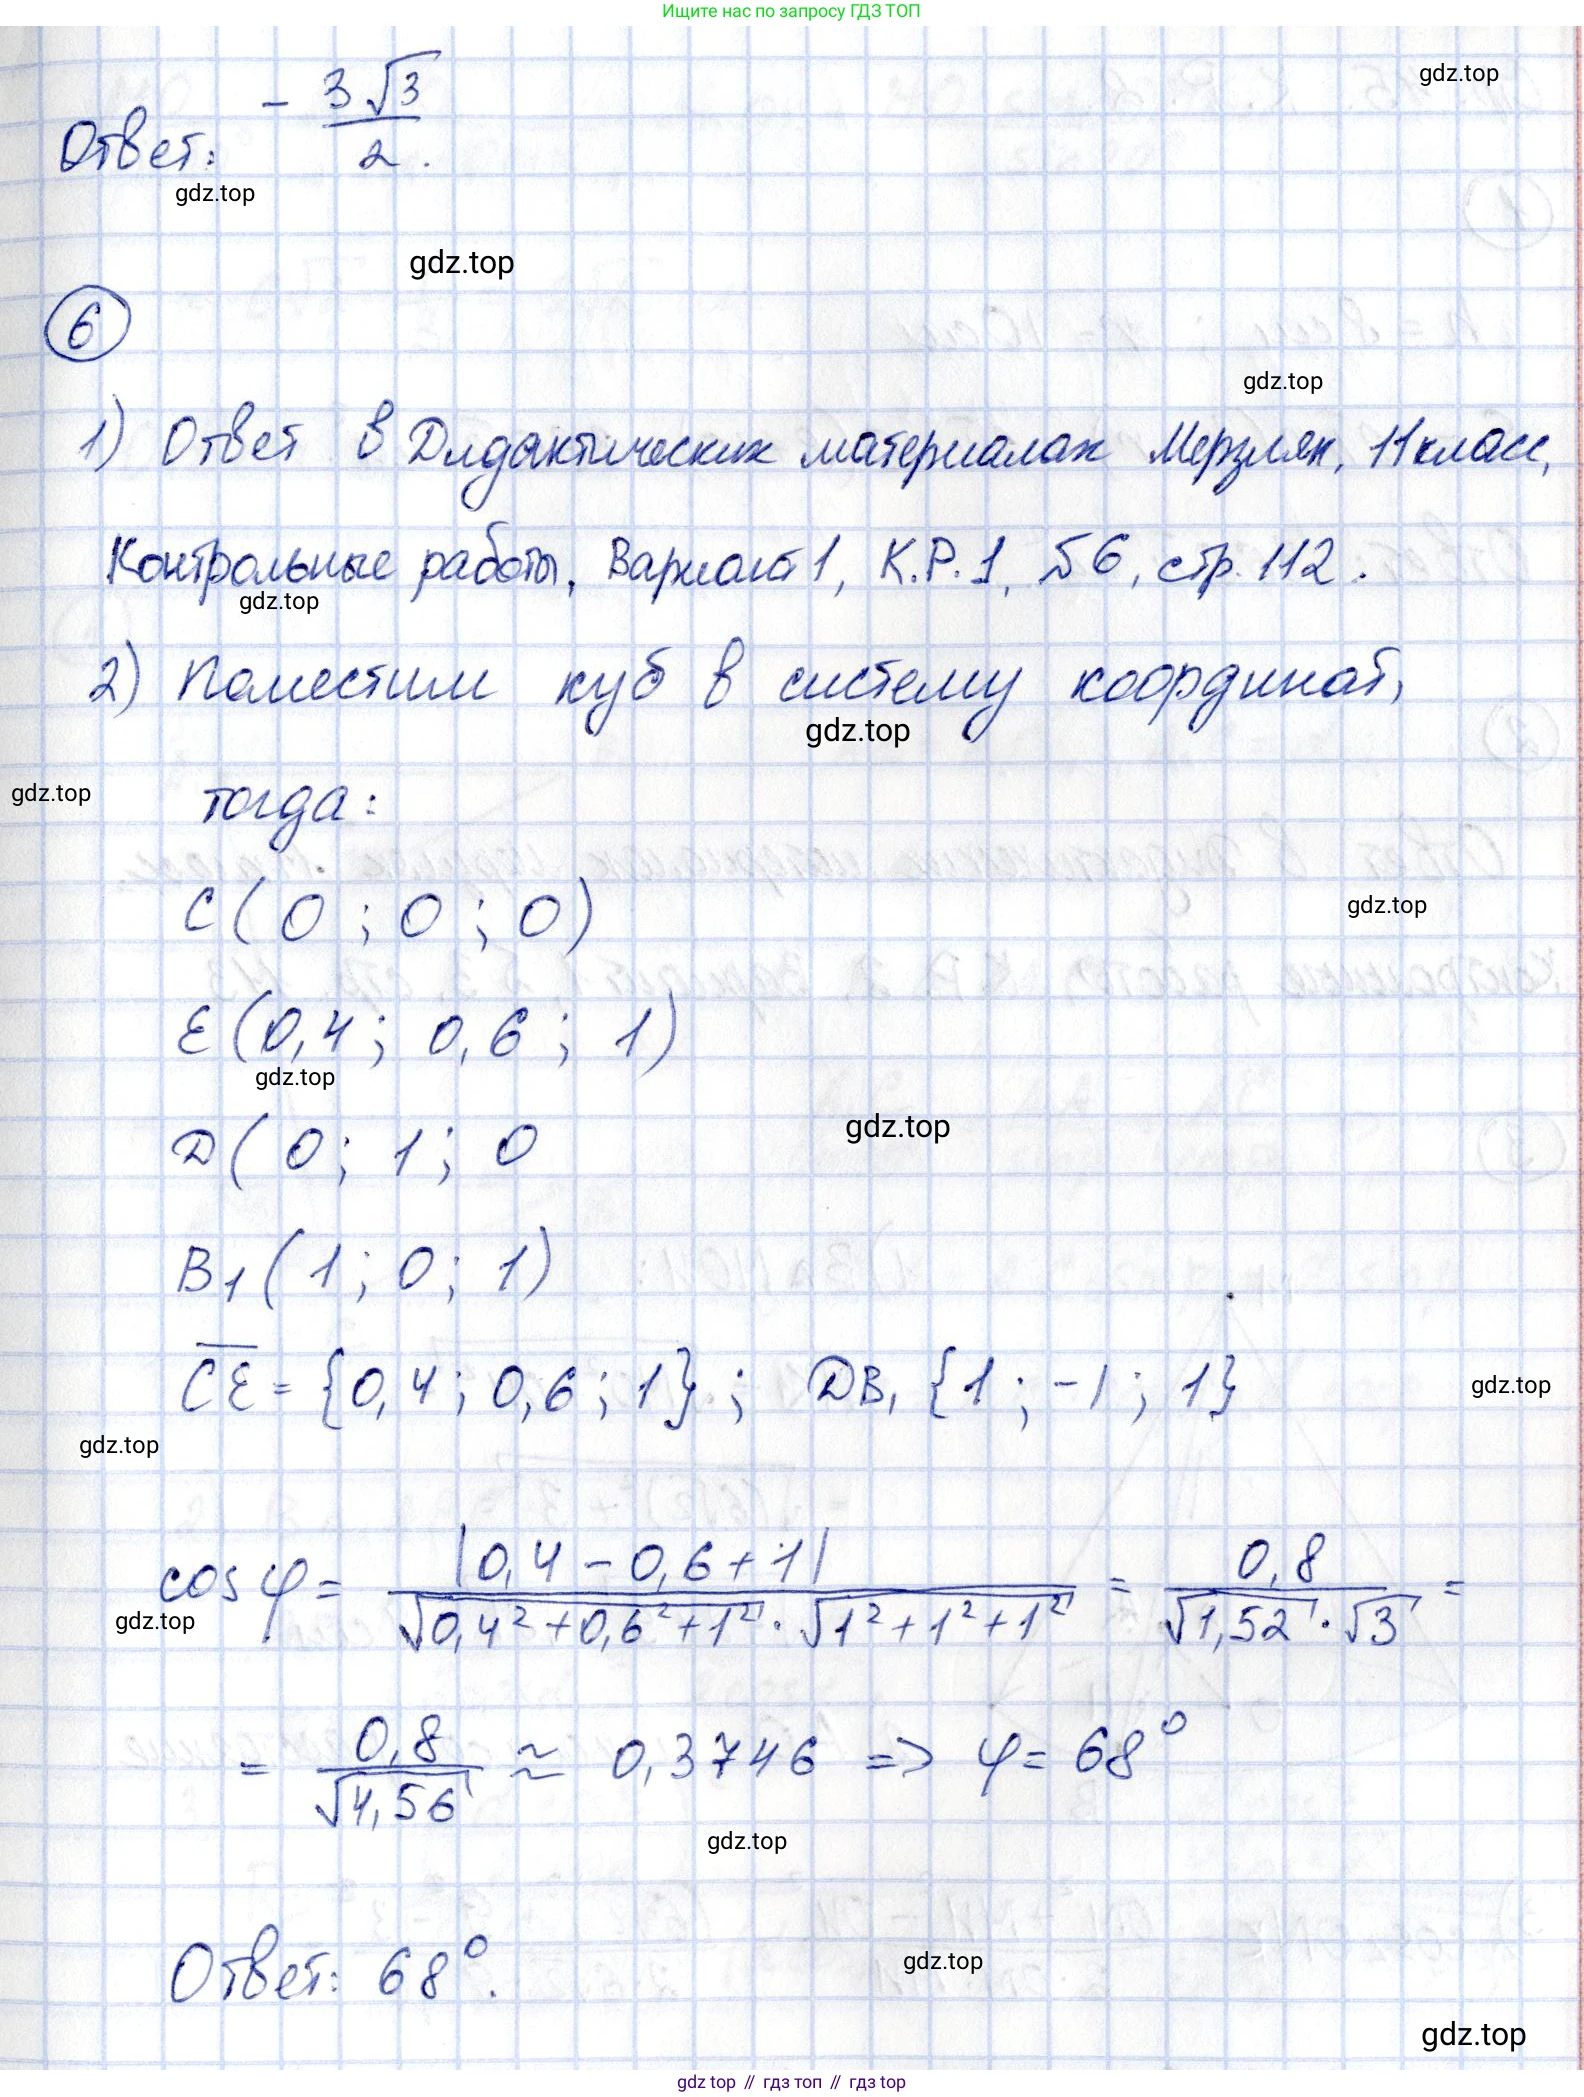 Ищите нас по запросу ГДЗ ТОП
gdz.top
Ответ: - 3√3 / 2.
gdz.top
gdz.top
6
gdz.top
1) Ответ в Дидактических материалах Мерзляк, 11 класс,
Контрольные работы, Вариант 1, К.Р.1, №6, стр. 112.
gdz.top
2) Поместим куб в систему координат,
gdz.top
gdz.top
тогда:
C(0; 0; 0)
gdz.top
E(0,4; 0,6; 1)
gdz.top
gdz.top
D(0; 1; 0
B₁(1; 0; 1)
CE = {0,4; 0,6; 1}; DB₁ {1; -1; 1}
gdz.top
gdz.top
cos φ = |0,4 - 0,6 + 1| / √0,4² + 0,6² + 1² · √1² + 1² + 1² = 0,8 / √1,52 · √3 =
gdz.top
= 0,8 / √4,56 ≈ 0,3746 => φ = 68°
gdz.top
Ответ: 68°.
gdz.top
gdz.top
gdz.top // гдз топ // гдз top